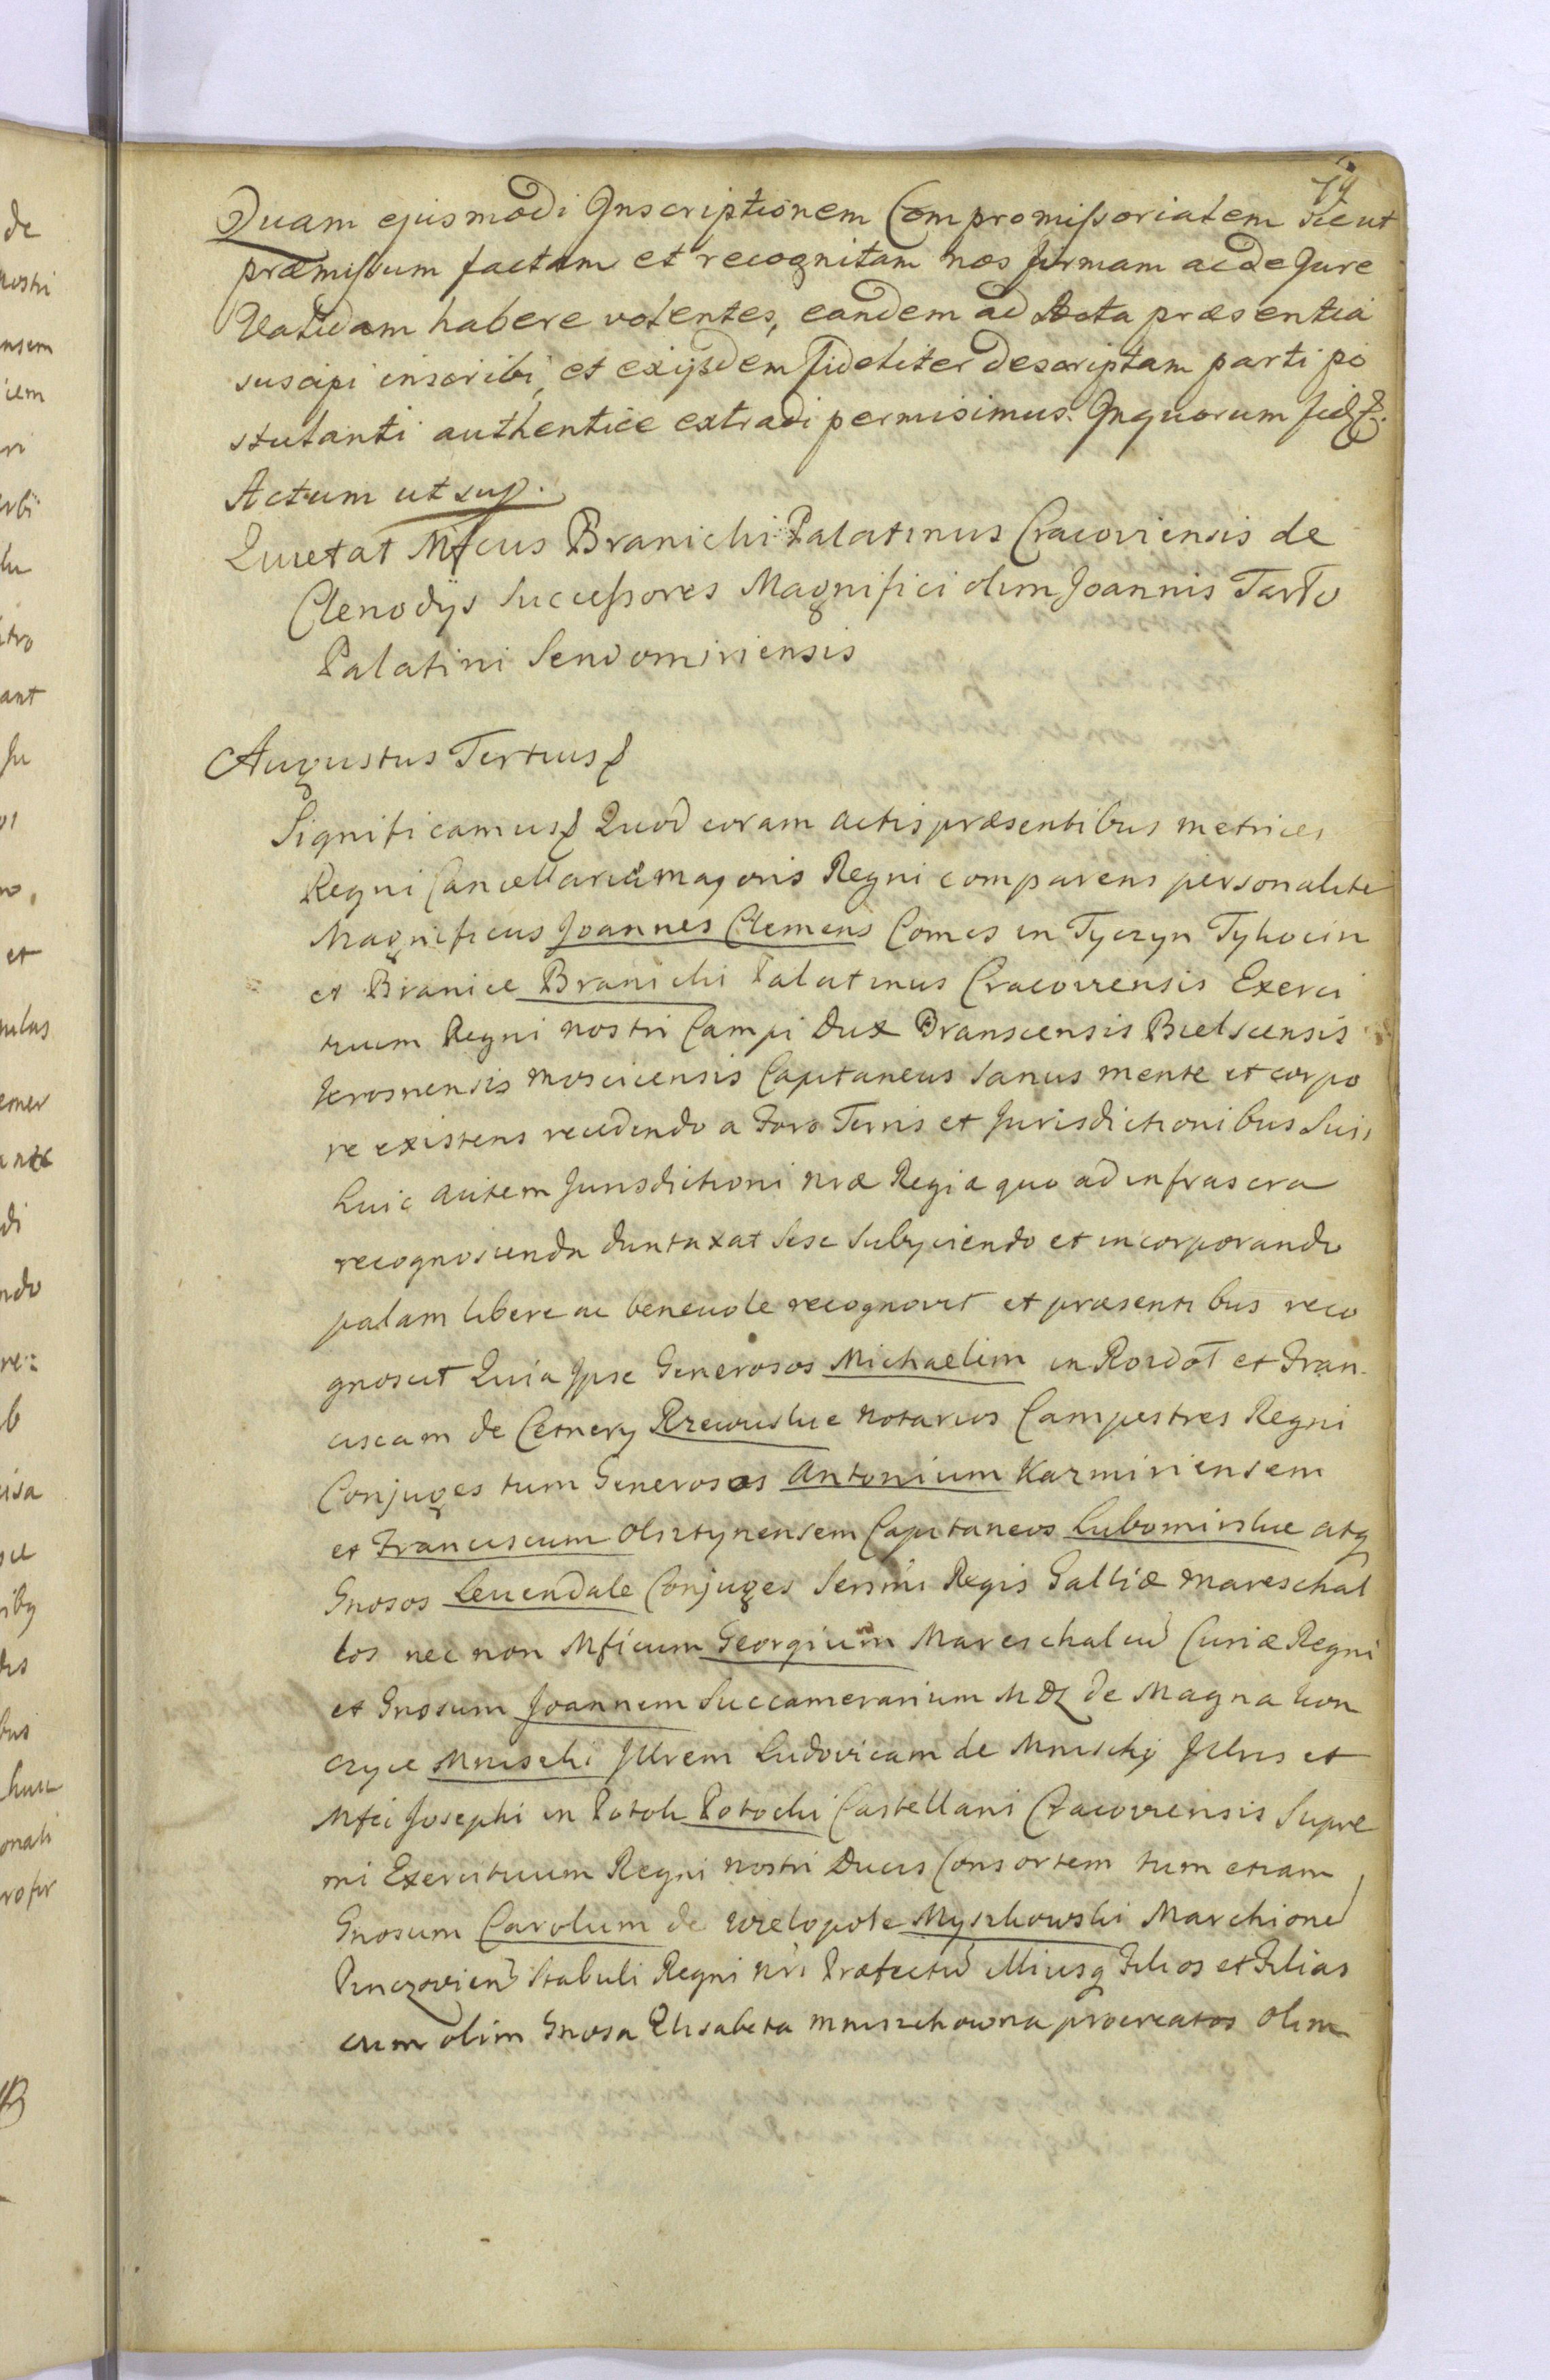 79
Quam ejusmodi Inscriptionem Compromissoriatem sicut
præmissum factam et recognitam nos firmam ac de Jure
Validam habere volentes, eandem ad Acta præsentia
suscipi inscribi, et exijsdem fideliter descriptam parti po
stulanti authentice extradi permisimus. In quorum fid
Actum ut sup.
Quietat Mfcus Branicki Palatinus Cracoviensis de
Clenodÿs Successores Magnifici olim Joannis Tarło
Palatini Sendomiriensis
Augustus Tertius
Significamus Quod coram actis præsentibus metrices
Regni Cancellariæ majoris Regni comparens personalite
Magnificus Joannes Clemens Comes in Tyczyn Tykocin
et Branice Branicki Palatinus Cracoviensis Exerci
tuum Regni nostri Campi Dux Branscensis Bielscensis
Krosnensis moscicensis Capitaneus sanus mente et corpo
re existens recedendo a Foro Terris et Jurisdictionibus Suis
huic autem Jurisdictioni nræ Regiæ quo ad infrascra
recognoscenda duntaxat sese subyciendo et incorporando
palam libere ac benevole recognovit et præsentibus reco
gnoscit Quia Ipse Generosos Michaelem in Rozdoł et Fran
ciscam de Cetnery Rzewuskie notarios Campestres Regni
Conjuges tum Generosos Antonium Kazmiriensem
et Franciscum Olsztynensem Capitaneos Lubomirskie atq
Gnosos Leuendale Conjuges Sersmi Regis Galliæ mareschal
los nec non Mficum Georgium Mareschalcu Curiæ Regni
et Gnosum Joannem Succamerarium MDL de Magna Kon
czyce Mniszchi Jllrem Ludovicam de Mnischÿ Jllris et
Mfci Josephi in Potok Potocki Castellani Cracoviensis Supre
mi Exercituum Regni nostri Ducis Consortem tum etiam
Gnosum Carolum de Wielopole Myszkowski Marchione
Pinczovien Stabuli Regni nri Præfectu illiusq Filios et Filias
cum olim Gnosa Elisabeta mniszchowna procreatos olim